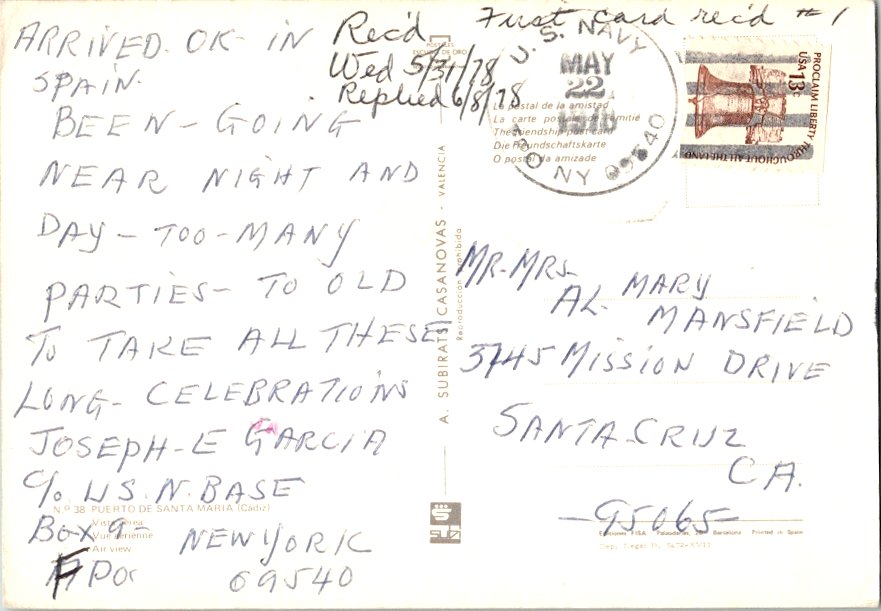 First card rec'd #1
Rec'd
Wed 5/31/78
Replied 6/8/78
ARRIVED-OK-IN
SPAIN-
BEEN-GOING
NEAR NIGHT AND
DAY-TOO-MANY
PARTIES-TO OLD
TO TAKE ALL THESE
LONG-CELEBRATIONS
JOSEPH-E GARCIA
C/o. U.S.N. BASE
BOX 9-
NEW YORK
FPO
09540
Nº 38 PUERTO DE SANTA MARIA (Cádiz)
Vista aérea
Vue aérienne
Air view
POSTALES
ESCUDO DE ORO
A. SUBIRATS CASANOVAS - VALENCIA
Reproducción prohibida
U.S. NAVY
MAY
22
1978
NY 09540
La postal de la amistad
La carte postale de l'amitié
The friendship post card
Die Freundschaftskarte
O postal da amizade
PROCLAIM LIBERTY THROUGHOUT ALL THE LAND
USA 13c
MR-MRS-
AL- MARY
MANSFIELD
3745 MISSION DRIVE
SANTA-CRUZ
CA.
-95065-
Ediciones FISA
Barcelona Printed in Spain